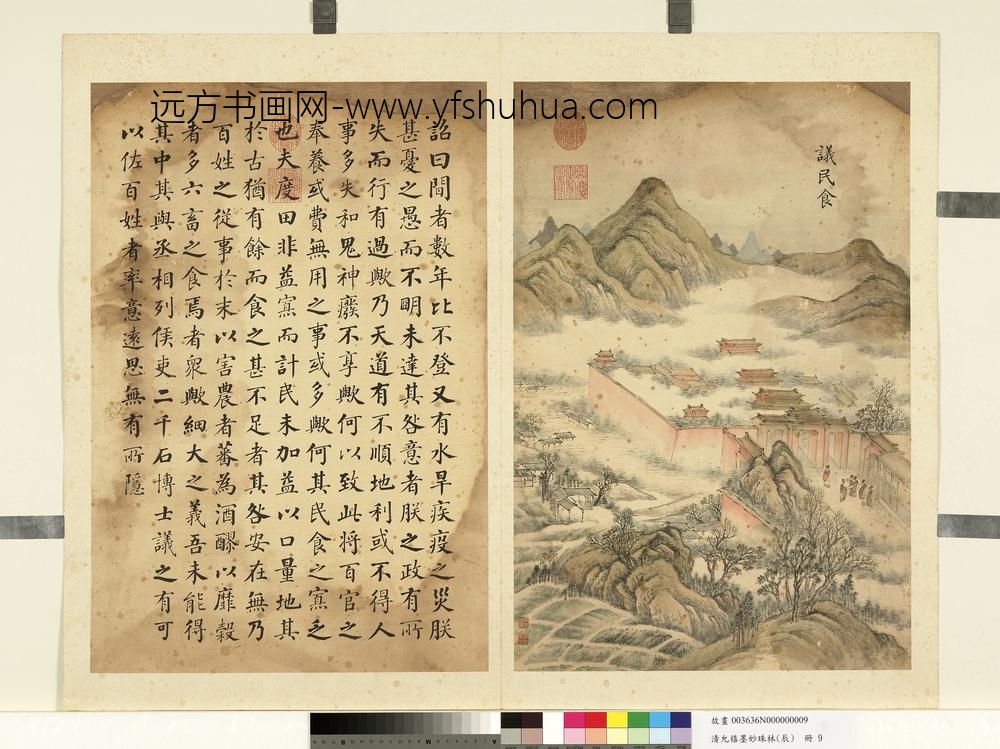 远方书画网-www.yfshuhua.com
議民食
詔曰間者數年比不登又有水旱疾疫之災朕
甚憂之愚而不明未達其咎意者朕之政有所
失而行有過歟乃天道有不順地利或不得人
事多失和鬼神廢不享歟何以致此將百官之
奉養或費無用之事或多歟何其民食之寡乏
也夫度田非益寡而計民未加益以口量地其
於古猶有餘而食之甚不足者其咎安在無乃
百姓之從事於末以害農者蕃為酒醪以靡穀
者多六畜之食焉者衆歟細大之義吾未能得
其中其與丞相列侯吏二千石博士議之有可
以佐百姓者率意遠思無有所隱
故畫 003636N000000009
清允禧墨妙珠林(辰) 冊 9